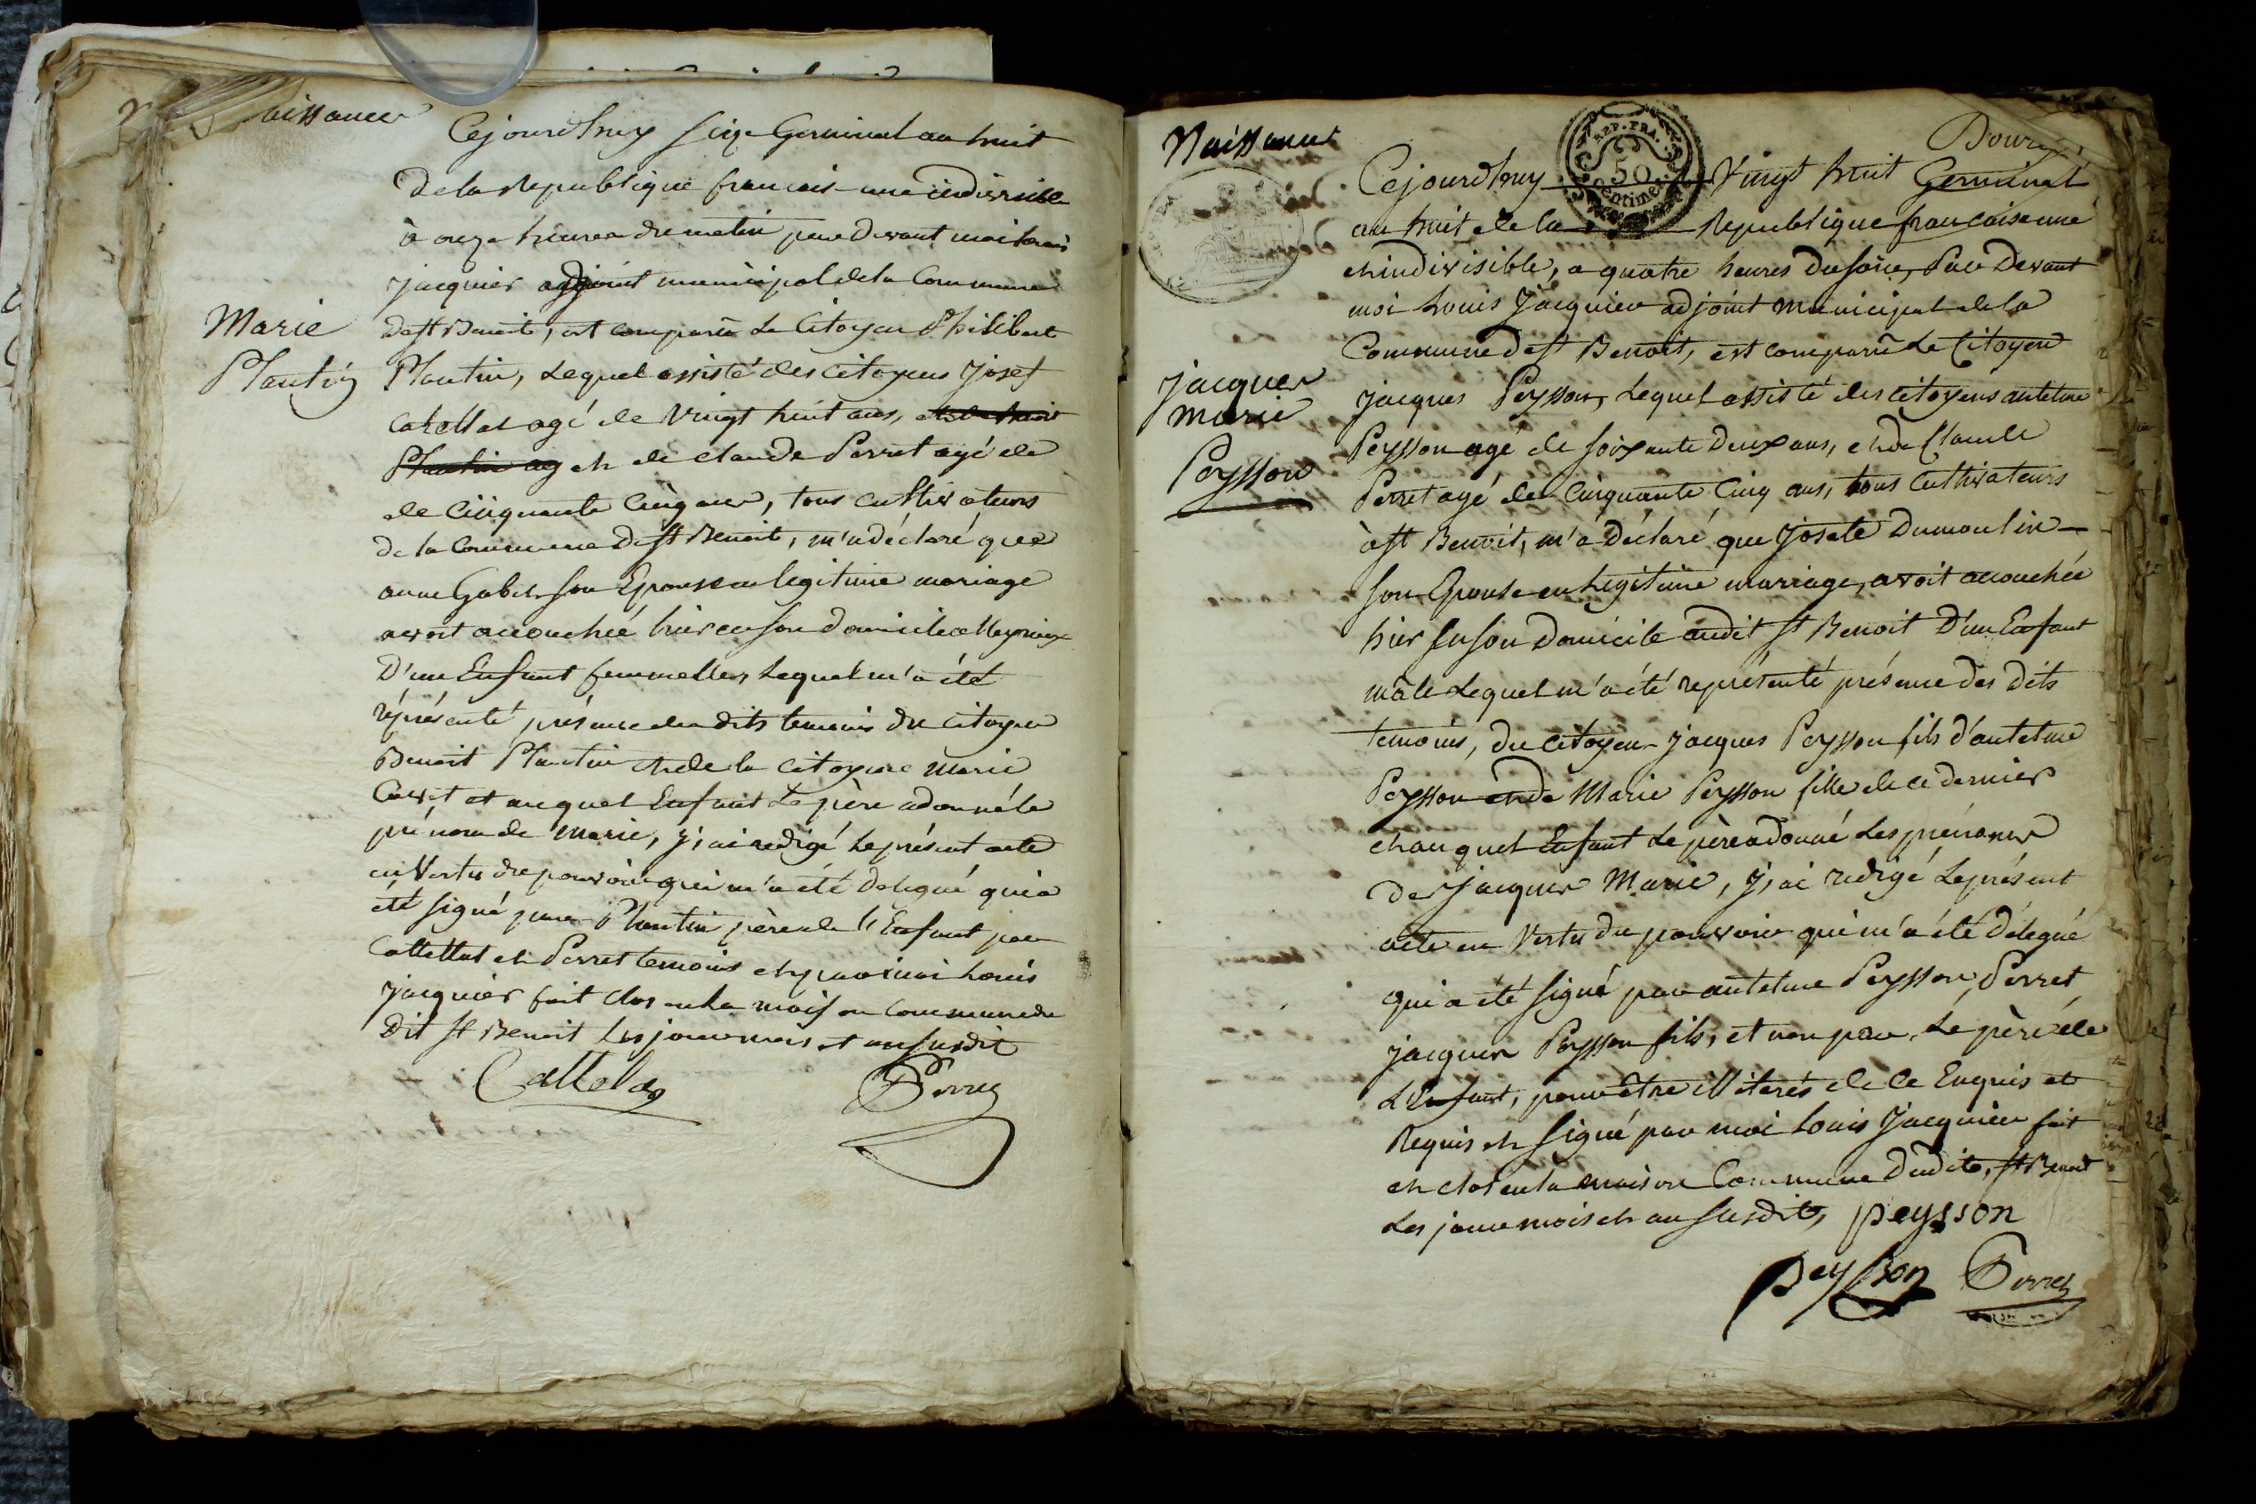 Naissance
Cejourdhuy seize Germinal an huit
de la Republique francais une indivisible
à onze heures du matin par devant moi Louis
jacquier adjoint municipal de la Commune
de St Benoit, est comparu Le Citoyen Philibert
Marie
Plantin
Plantin, Lequel assisté des citoyens Josef
Catellat agé de Vingt huit ans,
et de Claude Perret agé de
de Cinquante Cinq ans, tous cultivateurs
de la Commune de St Benoit, m'a déclaré que
anne Gabet son Epouse en legitime mariage
avoit accouchée hier en son domicile
D'un Enfant femmelle, Lequel m'a été
réprésenté présence des dits temoins du citoyen
Benoit Plantin et de la citoyene marie
et auquel Enfant Le père a donné le
prénom de marie, j'ai redigé Le présent acte
en Vertu du pouvoir qui m'a été delegué qui a
été signé par Plantin père de l'Enfant par
Cattellat et Perret temoins et par moi Louis
jacquier fait clos en la maison commune du
Dit St Benoit Les jour mois et an susdit
Cattelat Perret
Naissance
REP. FRA.
50
Centimes
Cejourdhuy Vingt huit Germinal
an huit de la Republique francaise une
et indivisible, a quatre heures du soire, Par Devant
moi Louis Jacquier adjoint municipal de la
Commune de St Benoit, est comparu Le Citoyen
jacques
marie
Peysson
jacques Peysson, Lequel assisté des citoyens antelme
Peysson agé de soixante Deux ans, et de Claude
Perret agé de Cinquante Cinq ans, tous Cultivateurs
à St Benoit, m'a Déclaré que Josete Dumoulin
son Epouse en Légitime marriage, avoit accouchée
hier en son Domicile audit St Benoit D'un Enfant
male Lequel m'a été représenté présence des Dits
temoins, du citoyen jacques Peysson fils d'antelme
Peysson et de Marie Peysson fille de ce dernier
et auquel Enfant Le père a donné Les prénoms
de Jacques Marie, j'ai redigé Le présent
acte en Vertu du pouvoir qui m'a été délegué
qui a été signé par antelme Peysson, Perret
jacques Peysson fils, et non par Le père de
L'Enfant, pour être illiterés de ce Enquis et
Requis et signé par moi Louis Jacquier fait
et clos en la maison Commune dudit St Benoit
Les jour mois et an susdits, peysson
peysson Perret